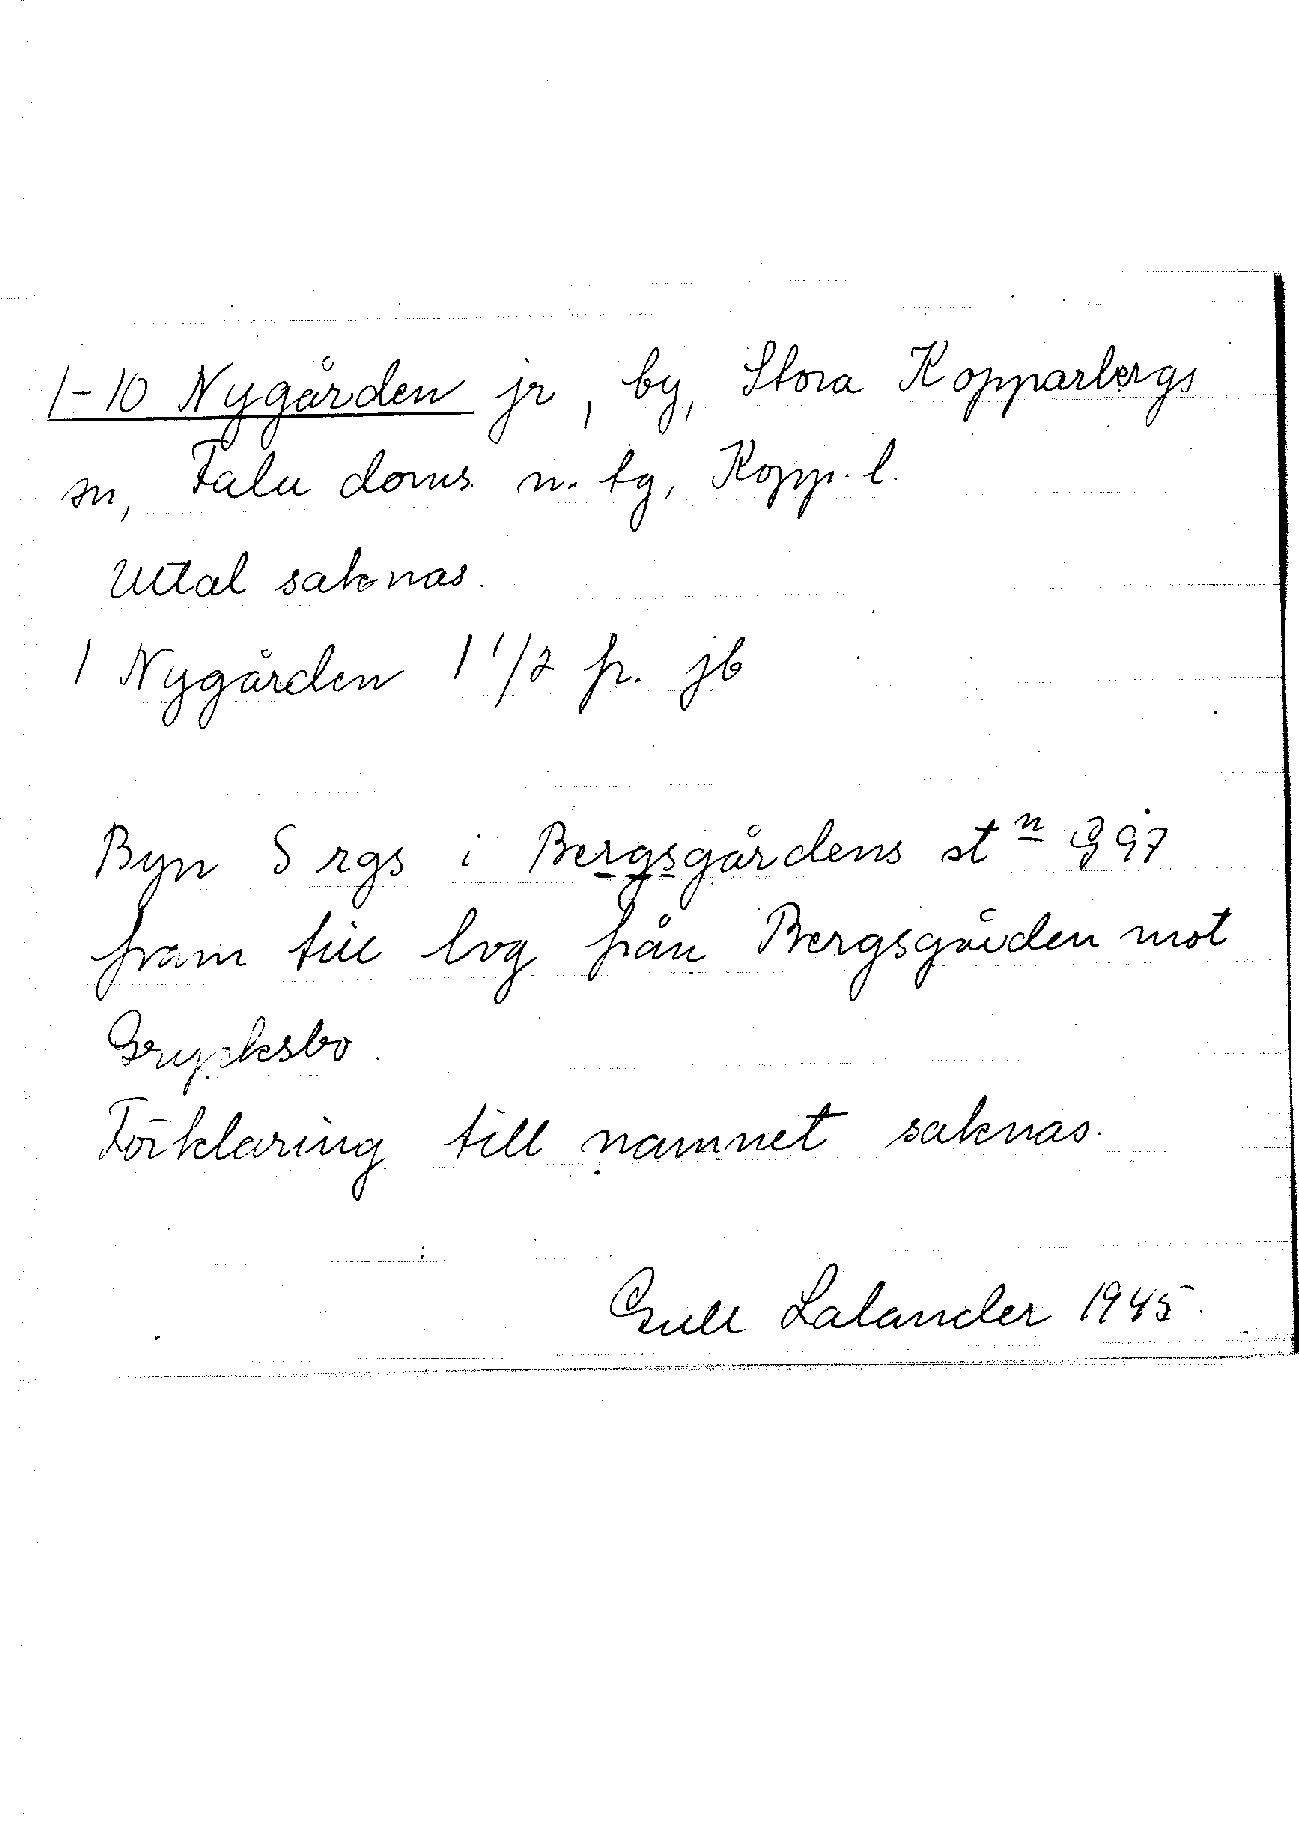 1-10 Nygården jr, by, Stora Kopparbergs
sn, Falu doms. n. tg, Kopp. l.
Uttal saknas.
1 Nygården 1 1/2 fr. jb
Byn S rgs i Bergsgårdens st n 97
fram till lvg från Bergsgården mot
Grycksbo.
Förklaring till namnet saknas.
Gull Lalander 1945.